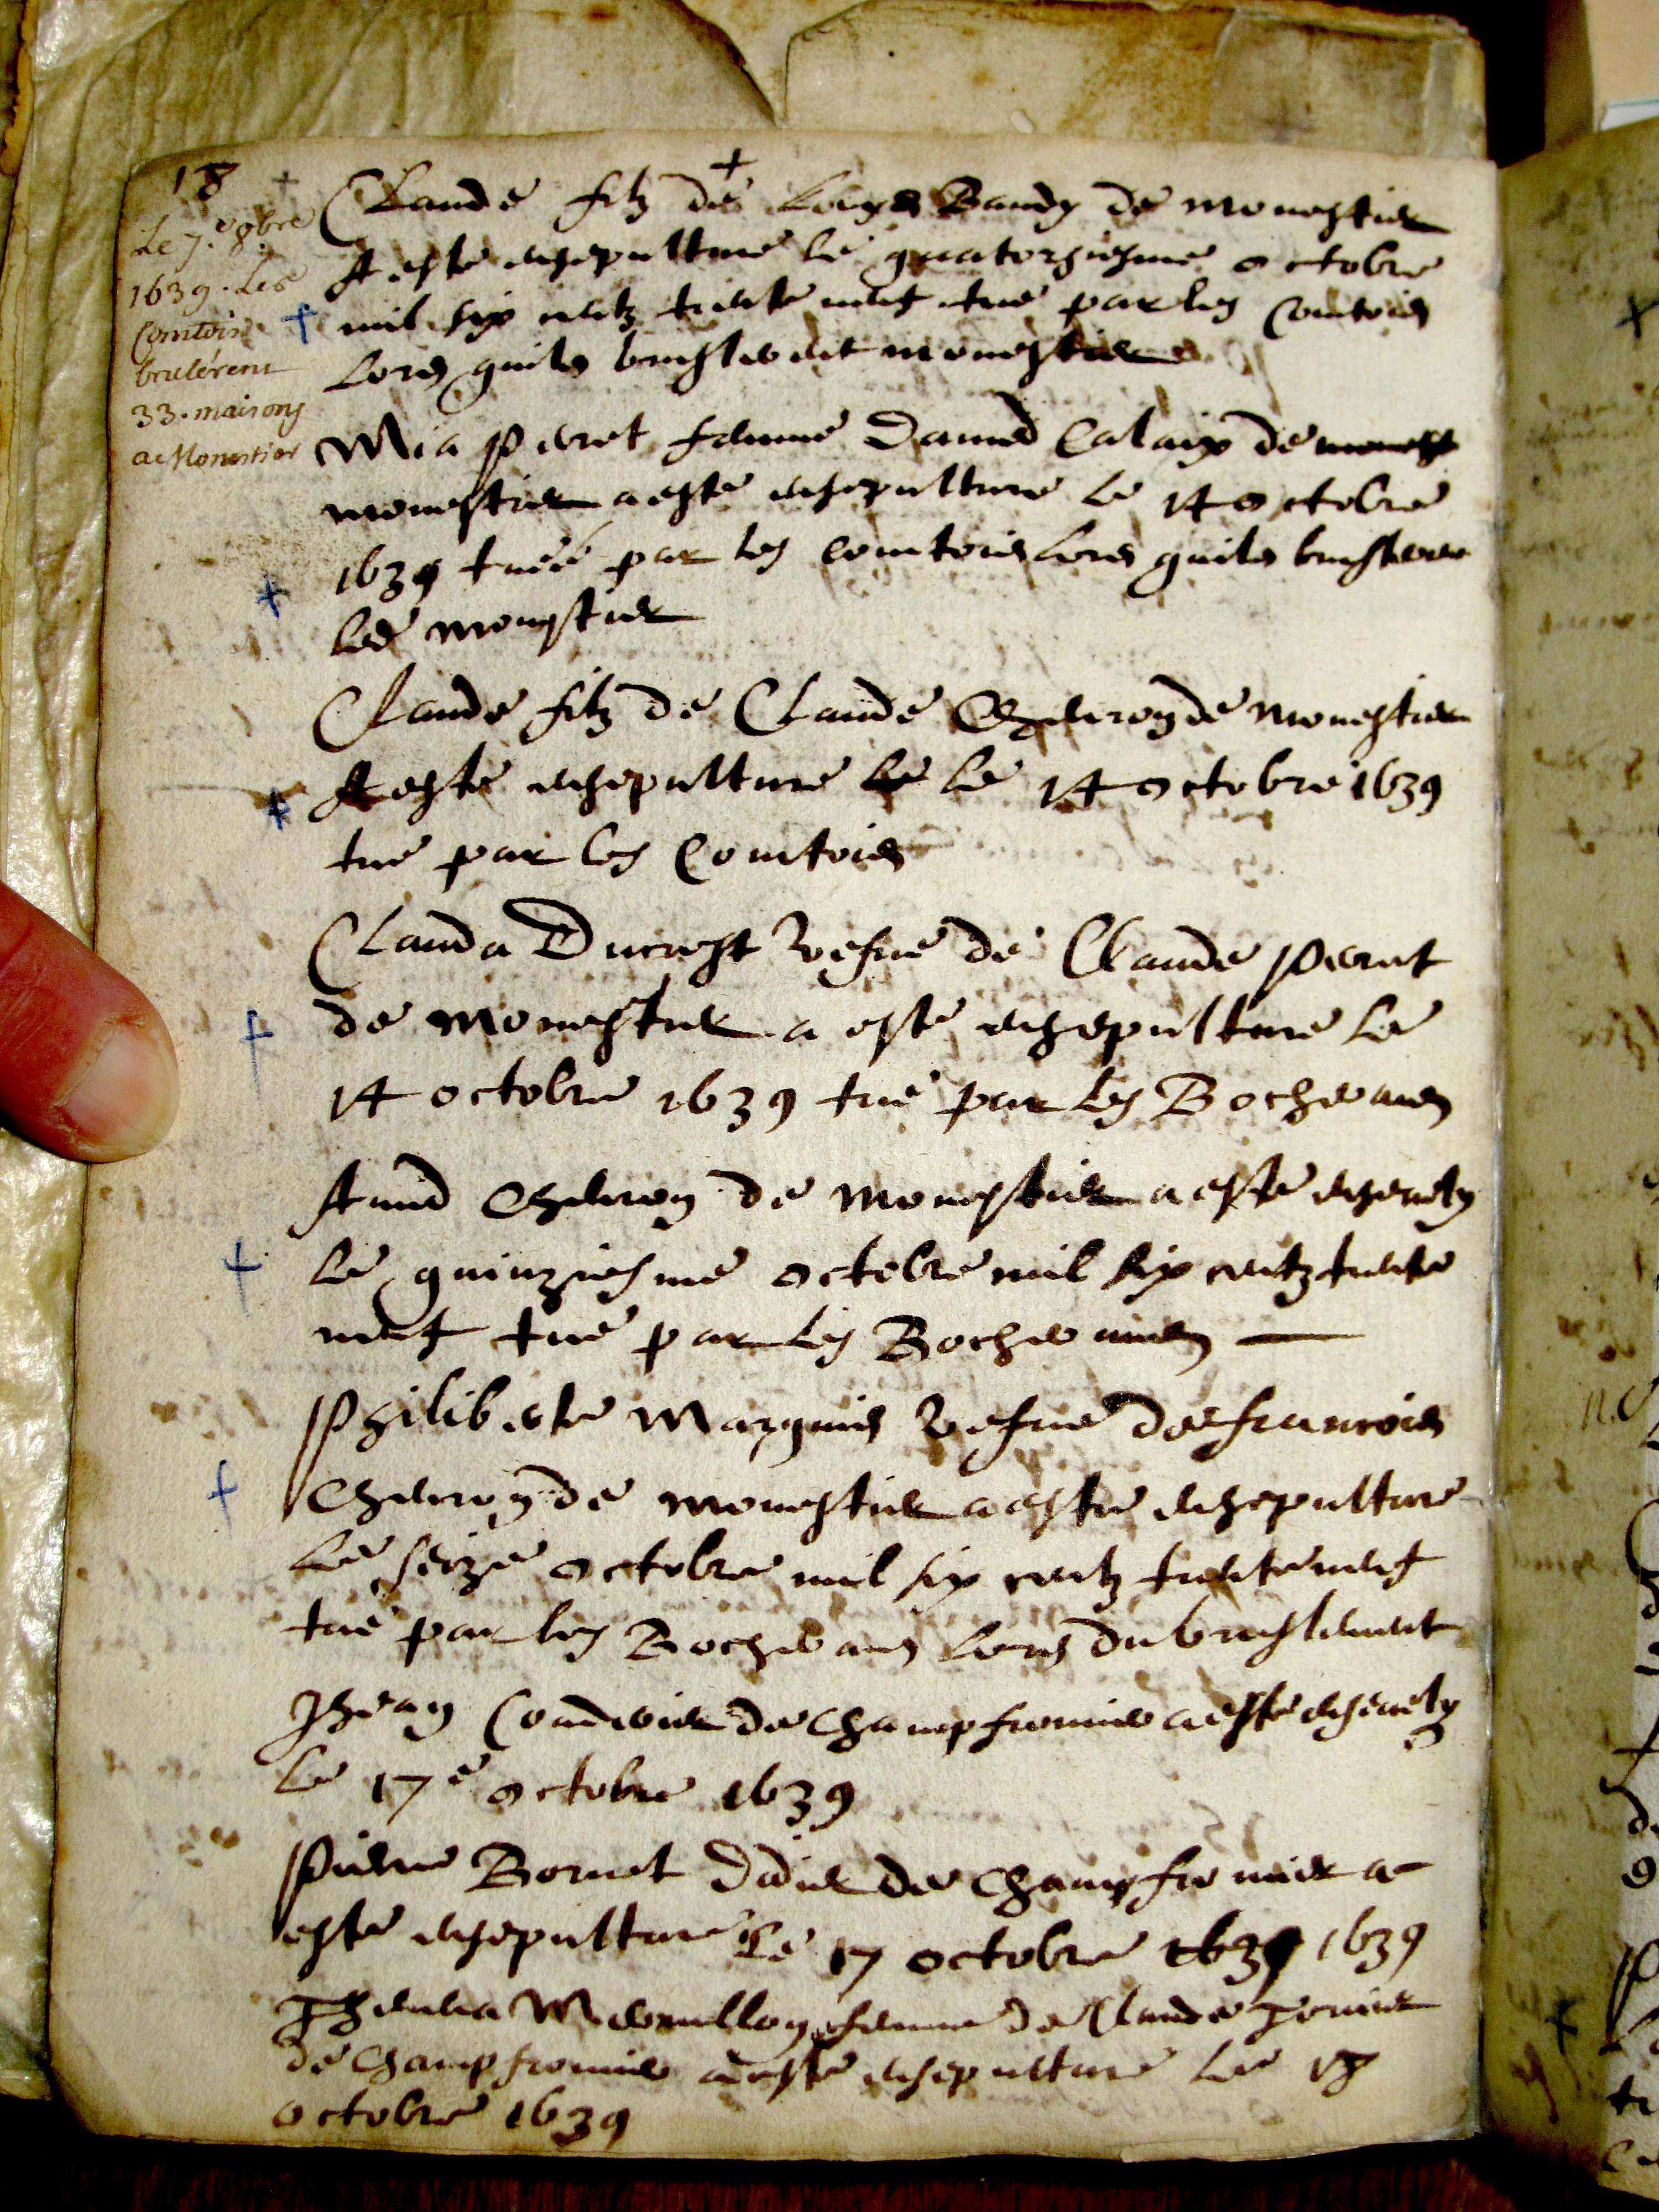 18
Le 7.e 8bre
1639. Les
Comtois
brulérent
33. maisons
a Monestier
Claude filz de Loys Baudy de monestier
A este ensepulture le quatorziesme octobre
mil six centz trente neuf tué par les Comtois
Lors quils bruslerent monestier
Mia Perret femme Damed Calaix de monest
monestier a este ensepulture le 14 octobre
1639 tuée par les comtois lors quils bruslerent
led monestier
Claude filz de Claude Chevron de monestier
A este ensepulture le le 14 octobre 1639
tué par les Comtois
Clauda Ducrest vefue de Claude Perret
de monestier a esté ensepulture le
14 octobre 1639 tué par les Bocherans
Amed Chevron de monestier a este ensevely
le quinziesme octobre mil six centz trente
neuf tué par les Bocherans
Philiberte Marquis vefue de francois
Chevron de monestier a este ensepulture
le seize octobre mil six centz trente neuf
tué par les Bocherans lors du bruslement
Jhean Coudurier de champfromier a este ensevely
le 17e octobre 1639
Pierre Bornet Didier de champfromier a
este ensepulture le 17 octobre 1639 1639
Thevena femme de Claude
de champfromier a este ensepulture le 18
octobre 1639